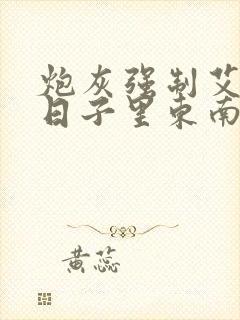 炮灰强制艾
日子里东南
黄蕊